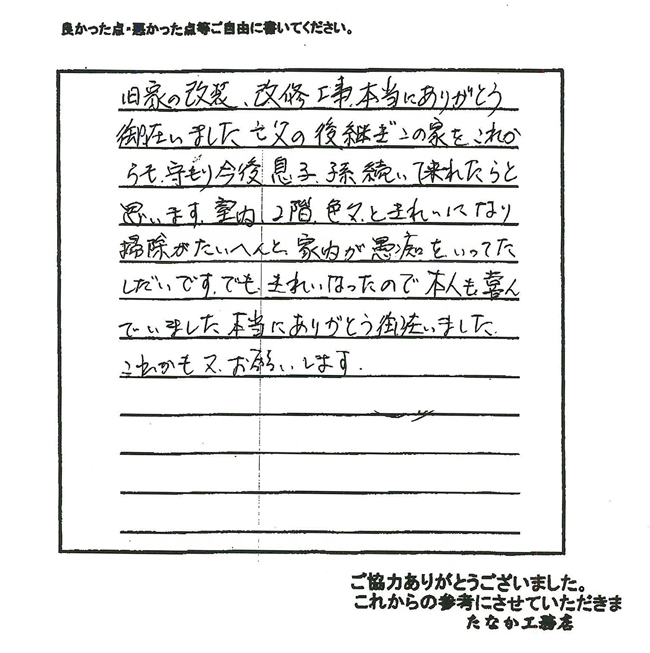 良かった点・悪かった点等ご自由に書いてください。
旧家の改装、改修工事、本当にありがとう
御在いました 亡父の後継ぎこの家を、これか
らも、守もり今後 息子、孫、続いて来れたらと
思います。室内 2階、色々、ときれいになり
掃除がたいへんと、家内が愚痴をいってた
しだいです。でも、きれいなったので本人も喜ん
でいました 本当にありがとう御在いました。
これかも又、お願いします。
ご協力ありがとうございました。
これからの参考にさせていただきま
たなか工務店